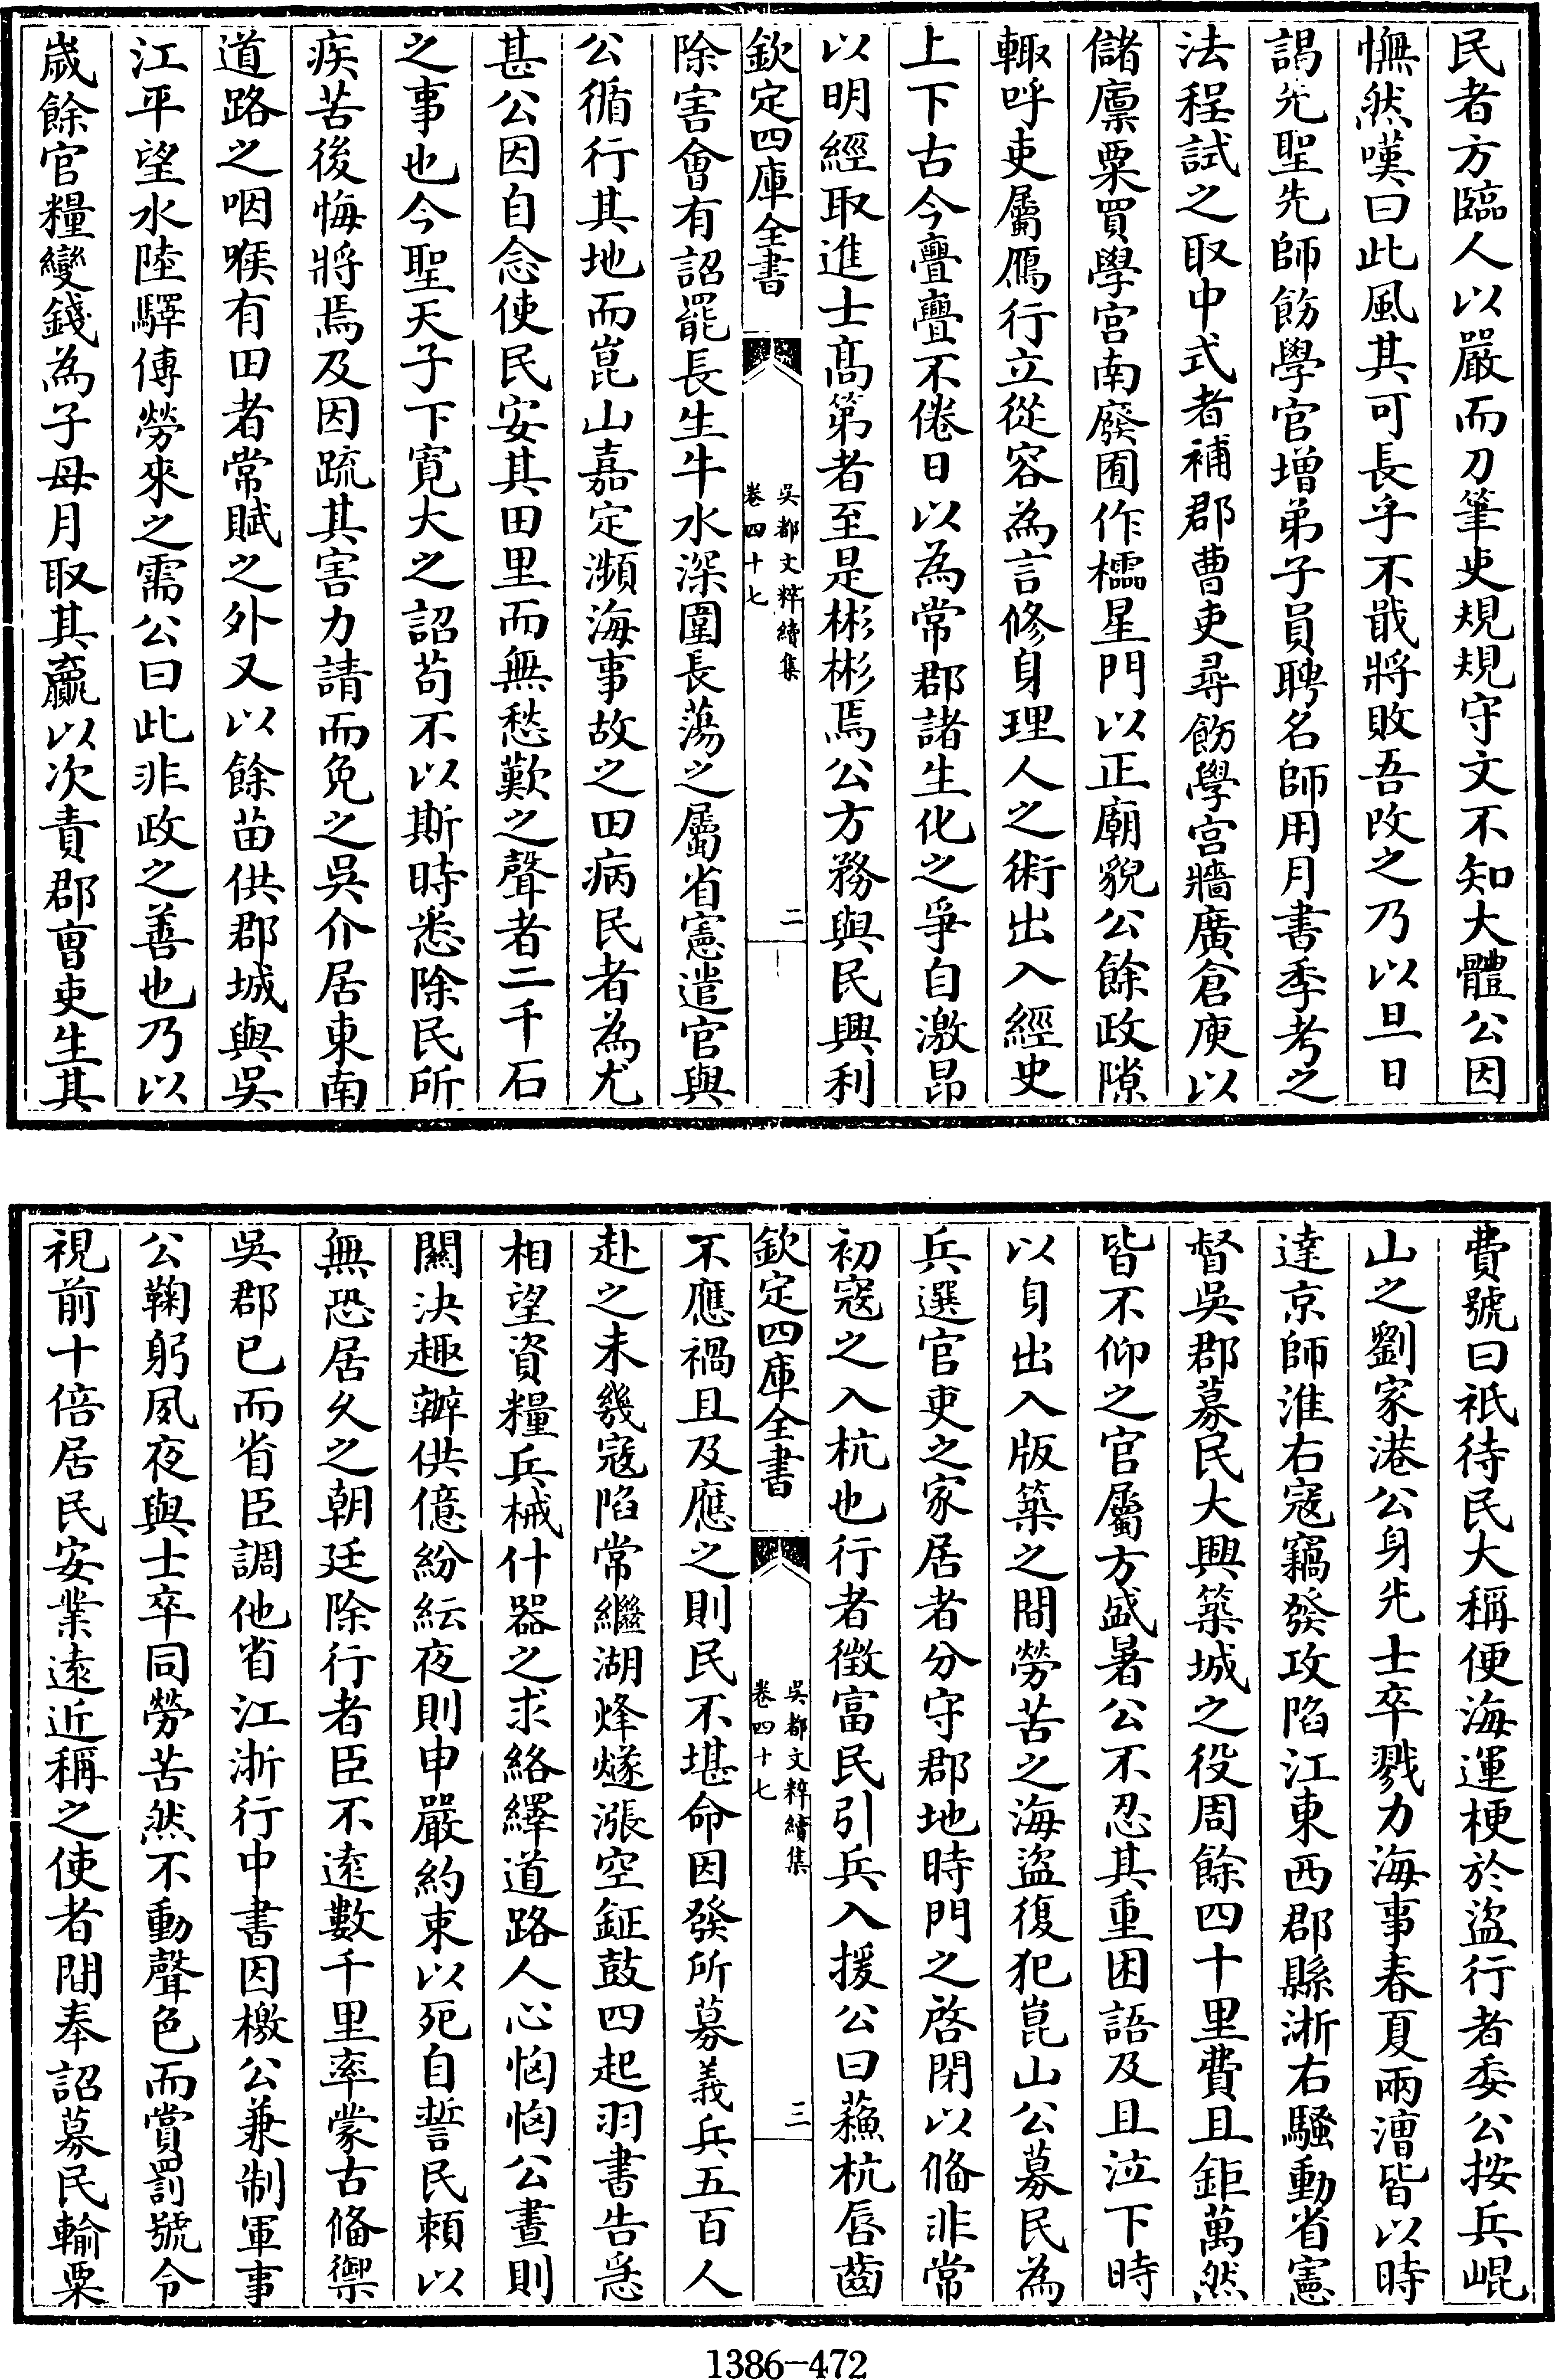 民者方臨人以嚴而刀筆吏規規守文不知大體公因
憮然嘆曰此風其可長乎不戢將敗吾政之乃以旦日
謁先聖先師飭學官增弟子員聘名師用月書季考之
法程試之取中式者補郡曹吏尋飭學宮牆廣倉庾以
儲廩粟買學宮南廢圃作櫺星門以正廟貌公餘政隙
輙呼吏屬鴈行立從容為言修身理人之術出入經史
上下古今亹亹不倦日以為常郡諸生化之爭自激昂
以明經取進士髙第者至是彬彬焉公方務與民興利
欽定四庫全書
吳都文粹續集
卷四十七
二
除害會有詔罷長生牛水深圍長蕩之屬省憲遣官與
公循行其地而崑山嘉定瀕海事故之田病民者為尤
甚公因自念使民安其田里而無愁歎之聲者二千石
之事也今聖天子下寛大之詔苟不以斯時悉除民所
疾苦後悔將焉及因疏其害力請而免之吳介居東南
道路之咽喉有田者常賦之外又以餘苗供郡城與吳
江平望水陸驛傳勞來之需公曰此非政之善也乃以
嵗餘官糧變錢為子母月取其贏以次責郡曹吏生其
費號曰祇待民大稱便海運梗於盜行者委公按兵崐
山之劉家港公身先士卒戮力海事春夏兩漕皆以時
達京師淮右寇竊發攻陷江東西郡縣淛右騷動省憲
督吳郡募民大興築城之役周餘四十里費且鉅萬然
皆不仰之官屬方盛暑公不忍其重困語及且泣下時
以身出入版築之間勞苦之海盜復犯崑山公募民為
兵選官吏之家居者分守郡地時門之啓閉以備非常
初寇之入杭也行者徵富民引兵入援公曰蘓杭唇齒
欽定四庫全書
吳都文粹續集
卷四十七
三
不應禍且及應之則民不堪命因發所募義兵五百人
赴之未幾寇陷常繼湖烽燧漲空鉦鼓四起羽書告急
相望資糧兵械什器之求絡繹道路人心恟恟公晝則
關決趣辦供億紛紜夜則申嚴約束以死自誓民賴以
無恐居久之朝廷除行者臣不逺數千里率蒙古備禦
吳郡已而省臣調他省江浙行中書因檄公兼制軍事
公鞠躬夙夜與士卒同勞苦然不動聲色而賞罰號令
視前十倍居民安業逺近稱之使者間奉詔募民輸粟
1386-472